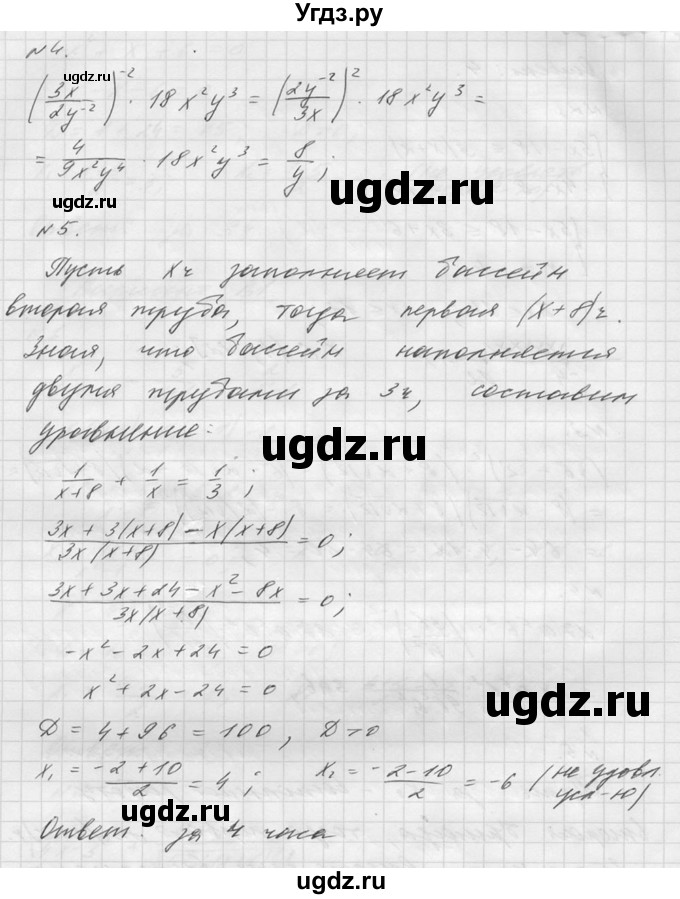 Угдз.ру
№4.
(3x/2y⁻²)⁻² · 18x²y³ = (2y⁻²/3x)² · 18x²y³ =
= 4/9x²y⁴ · 18x²y³ = 8/y ;
ugdz.ru
№5.
Пусть x ч заполняет бассейн
вторая труба, тогда первая (x+8)ч.
Зная, что бассейн наполняется
двумя трубами за 3ч, составим
уравнение:
ugdz.ru
1/x+8 + 1/x = 1/3 ;
3x + 3(x+8) – x(x+8)/3x(x+8) = 0;
3x + 3x + 24 – x² – 8x/3x(x+8) = 0;
-x² – 2x + 24 = 0
x² + 2x – 24 = 0
ugdz.ru
D = 4 + 96 = 100 , D > 0
x₁ = -2+10/2 = 4 ; x₂ = -2-10/2 = -6 (не удовл.
усл-ю)
Ответ: за 4 часа
ugdz.ru
ugdz.ru